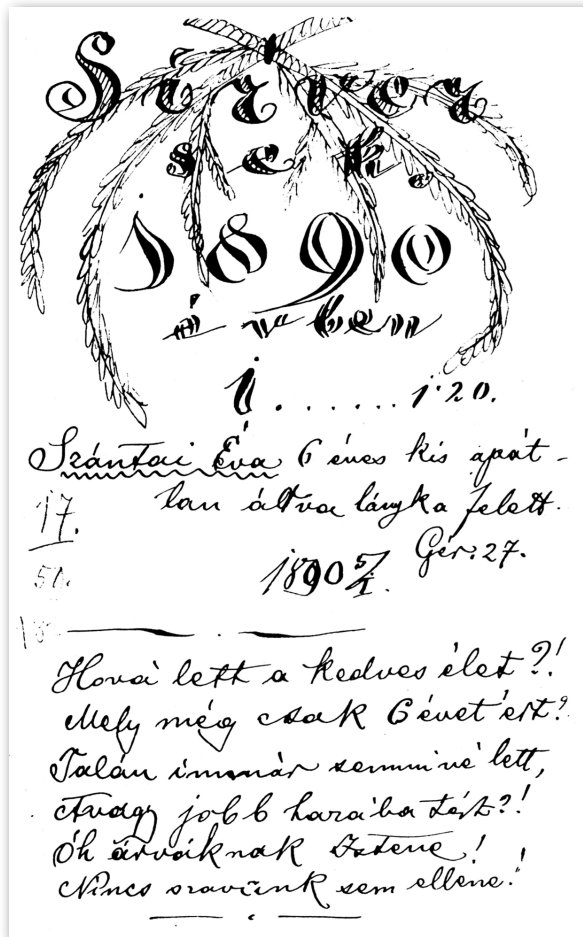 Sírver
sek
1890
évben
1. . . . . . . 1·20.
Szántai Éva 6 éves kis apát-
lan árva lányka felett.
17.
Gér. 27.
50.
1890 5/I.
Hová lett a kedves élet?!
Mely még csak 6 évet ért?
Talán immár semmivé lett,
Avagy jobb hazába tért?!
Óh árváknak Istene!
Nincs szavunk sem ellene!